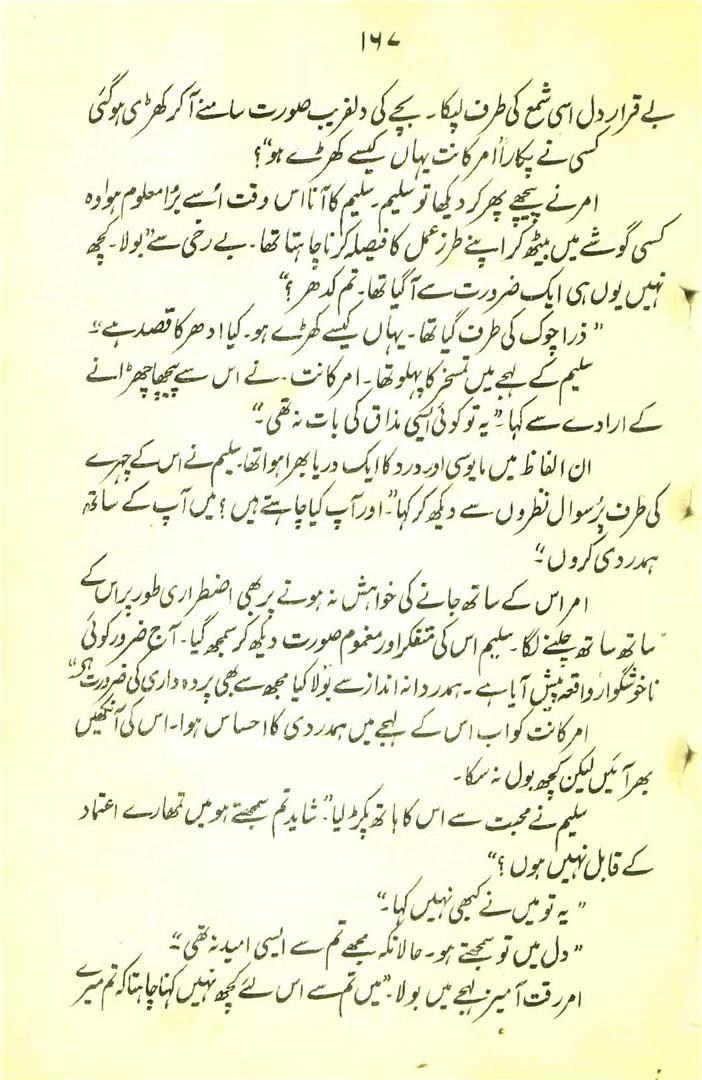 ۱۶۷
بے قرار دل اسی شمع کی طرف لپکا۔ بچے کی دلفریب صورت سامنے آکر کھڑی ہوگئی
کسی نے پکارا "امرکانت یہاں کیسے کھڑے ہو"؟
امر نے پیچھے پھر کر دیکھا تو سلیم۔ سلیم کا آنا اس وقت اُسے بُرا معلوم ہوا وہ
کسی گوشے میں بیٹھ کر اپنے طرز عمل کا فیصلہ کرنا چاہتا تھا۔ بے رخی سے "بولا۔ کچھ
نہیں یوں ہی ایک ضرورت سے آگیا تھا۔ تم کدھر؟"
"ذرا چوک کی طرف گیا تھا۔ یہاں کیسے کھڑے ہو۔ کیا ادھر کا قصد ہے"۔
سلیم کے لہجے میں تمسخر کا پہلو تھا۔ امرکانت۔ نے اس سے پیچھا چھڑانے
کے ارادے سے کہا۔ "یہ تو کوئی ایسی مذاق کی بات نہ تھی۔"
ان الفاظ میں مایوسی اور درد کا ایک دریا بھرا ہوا تھا۔ سلیم نے اس کے چہرے
کی طرف پُرسوال نظروں سے دیکھ کر کہا۔ "اور آپ کیا چاہتے ہیں؟ میں آپ کے ساتھ
ہمدردی کروں"۔
امر اس کے ساتھ جانے کی خواہش نہ ہونے پر بھی اضطراری طور پر اس کے
ساتھ ساتھ چلنے لگا۔ سلیم اس کی متفکر اور مغموم صورت دیکھ کر سمجھ گیا۔ آج ضرور کوئی
ناخوشگوار واقعہ پیش آیا ہے۔ ہمدردانہ انداز سے بولا "کیا مجھ سے بھی پردہ داری کی ضرورت ہے"
امرکانت کو اب اس کے لہجے میں ہمدردی کا احساس ہوا۔ اس کی آنکھیں
بھر آئیں لیکن کچھ بول نہ سکا۔
سلیم نے محبت سے اس کا ہاتھ پکڑ لیا۔ "شاید تم سمجھتے ہو میں تمھارے اعتماد
کے قابل نہیں ہوں؟"
"یہ تو میں نے کبھی نہیں کہا۔"
"دل میں تو سمجھتے ہو۔ حالانکہ مجھے تم سے ایسی امید نہ تھی"۔
امر رقت آمیز لہجے میں بولا۔ "میں تم سے اس لئے کچھ نہیں کہنا چاہتا کہ تم میرے